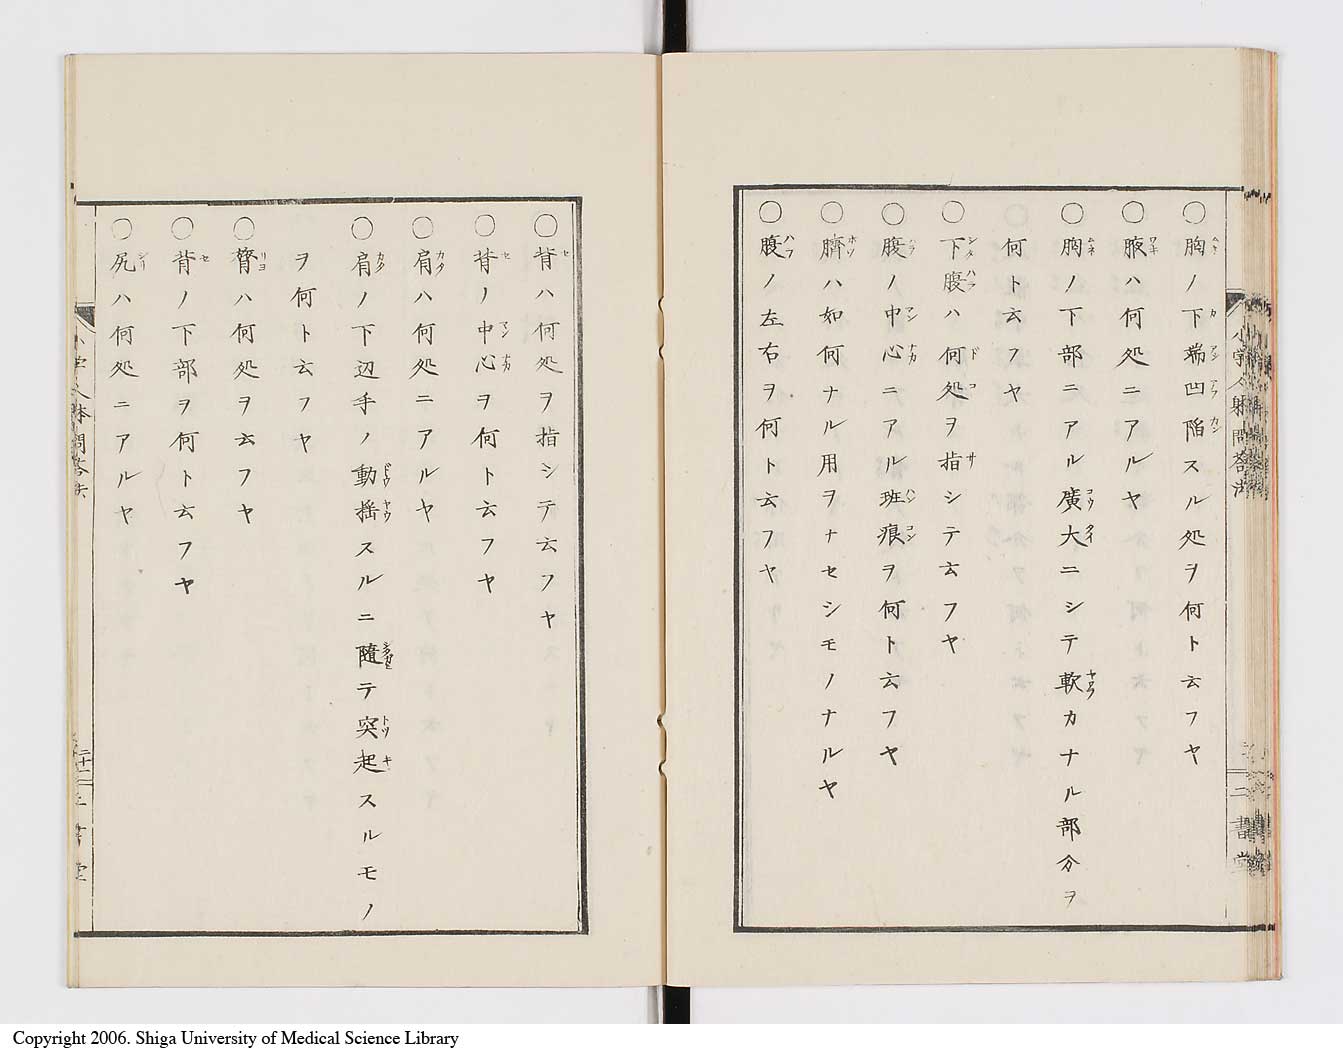 〇胸ノ下端凹陥スル処ヲ何ト云フヤ
〇腋ハ何処ニアルヤ
〇胸ノ下部ニアル廣大ニシテ軟カナル部分ヲ
何ト云フヤ
〇下腹ハ何処ヲ指シテ云フヤ
〇腹ノ中心ニアル斑痕ヲ何ト云フヤ
〇臍ハ如何ナル用ヲナセシモノナルヤ
〇腹ノ左右ヲ何ト云フヤ
〇背ハ何処ヲ指シテ云フヤ
〇背ノ中心ヲ何ト云フヤ
〇肩ハ何処ニアルヤ
〇肩ノ下辺手ノ動揺スルニ隨テ突起スルモノ
ヲ何ト云フヤ
〇膂ハ何処ヲ云フヤ
〇背ノ下部ヲ何ト云フヤ
〇尻ハ何処ニアルヤ
Copyright 2006. Shiga University of Medical Science Library